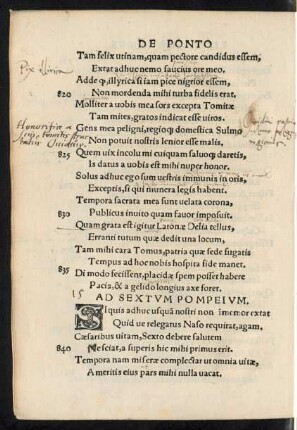 DE PONTO
Tam felix utinam, quam pectore candidus essem,
Extat adhuc nemo saucius ore meo.
Adde q, illyrica si iam pice nigrior essem,
820 Non mordenda mihi turba fidelis erat.
Molliter a uobis mea sors excepta Tomitæ
Tam mites, gratos indicat esse uiros.
Gens mea peligni, regioq; domestica Sulmo
Non potuit nostris lenior esse malis.
825 Quem uix incolumi cuiquam saluoq; daretis,
Is datus a uobis est mihi nuper honor.
Solus adhuc ego sum uestris immunis in oris,
Exceptis, si qui munera legis habent.
Tempora sacrata mea sunt uelata corona,
830 Publicus inuito quam fauor imposuit.
Quam grata est igitur Latonæ Delia tellus,
Erranti tutum quæ dedit una locum,
Tam mihi cara Tomus, patria quæ sede fugatis
Tempus ad hoc nobis hospita fide manet.
835 Di modo fecissent, placidæ spem posset habere
Pacis, & a gelido longius axe foret.
15
AD SEXTVM POMPEIVM.
SIquis adhuc usquã nostri non ĩmemor extat
Quid ue relegatus Naso requirat, agam,
Cæsaribus uitam, Sexto debere salutem
840 Me sciat, a superis hic mihi primus erit.
Tempora nam miseræ complectar ut omnia uitæ,
A meritis eius pars mihi nulla vacat.